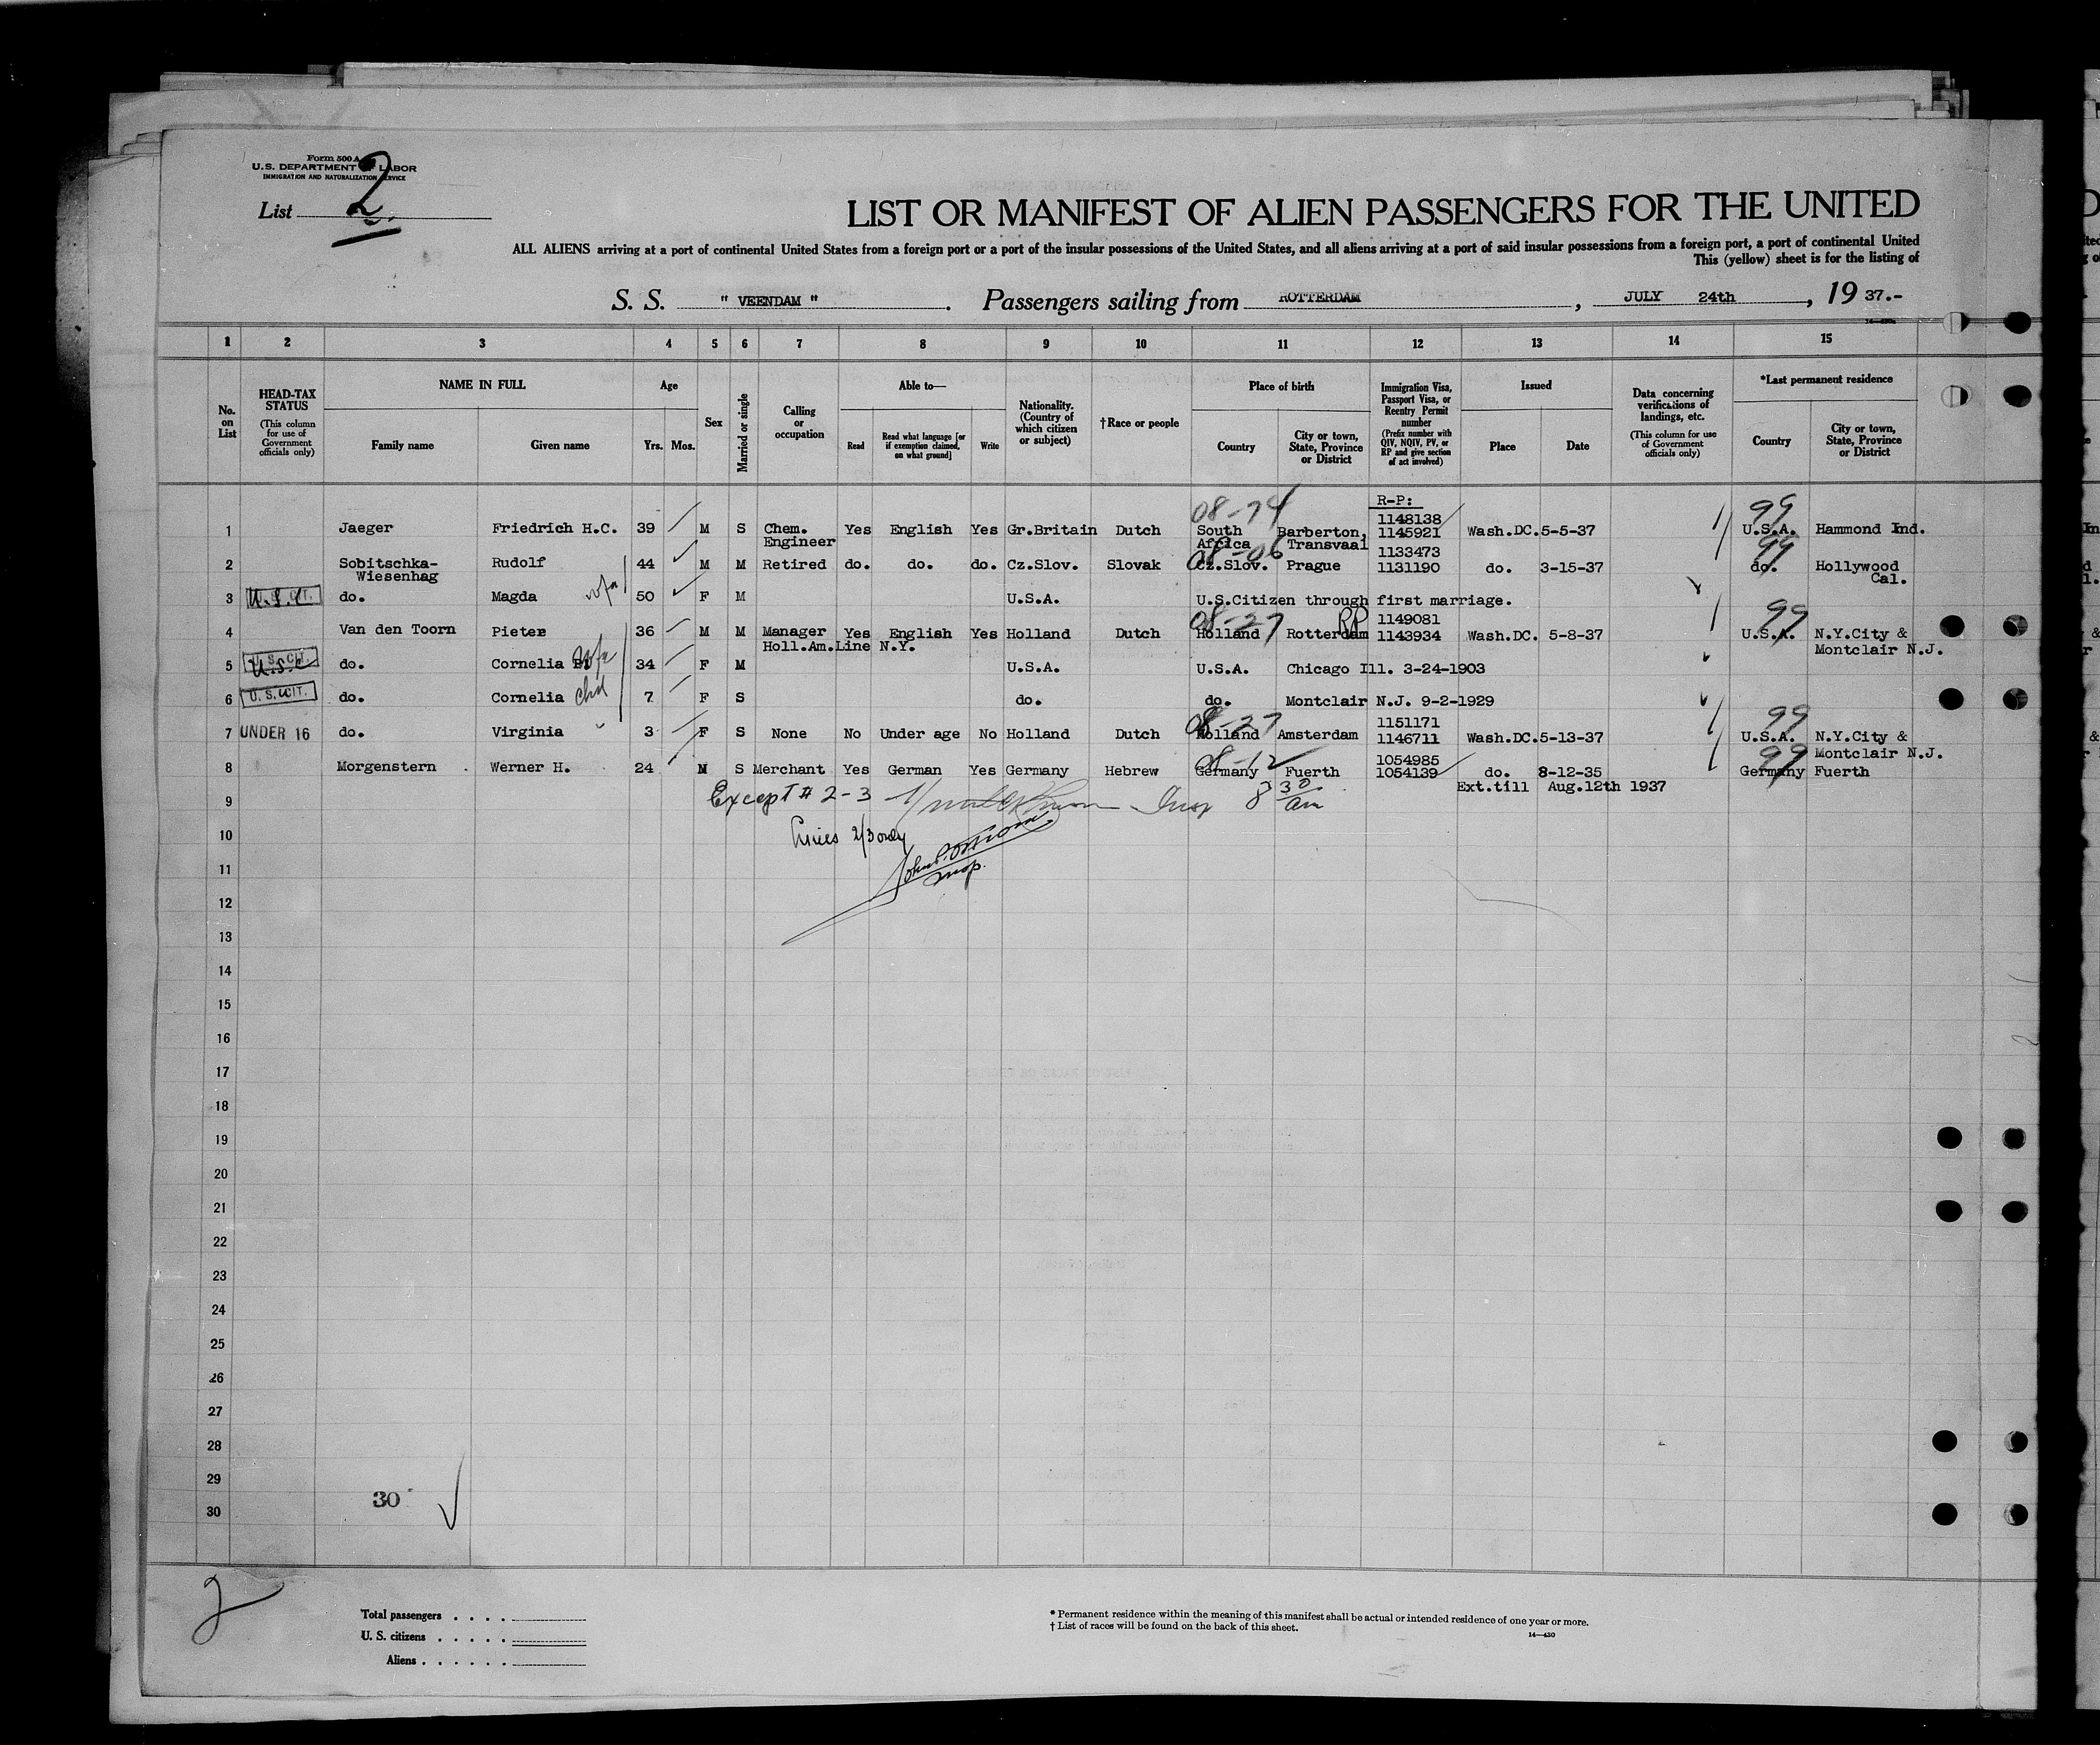 Form 500 A
U.S. DEPARTMENT OF LABOR
IMMIGRATION AND NATURALIZATION SERVICE
List 2
LIST OR MANIFEST OF ALIEN PASSENGERS FOR THE UNITED
ALL ALIENS arriving at a port of continental United States from a foreign port or a port of the insular possessions of the United States, and all aliens arriving at a port of said insular possessions from a foreign port, a port of continental United
This (yellow) sheet is for the listing of
S. S. " VEENDAM " . Passengers sailing from ROTTERDAM , JULY 24th , 19 37.-
1 2 3 4 5 6 7 8 9 10 11 12 13 14 15
No. on List
HEAD-TAX STATUS (This column for use of Government officials only)
NAME IN FULL
Family name Given name
Age
Yrs. Mos.
Sex
Married or single
Calling or occupation
Able to—
Read Read what language [or if exemption claimed, on what ground] Write
Nationality. (Country of which citizen or subject)
†Race or people
Place of birth
Country City or town, State, Province or District
Immigration Visa, Passport Visa, or Reentry Permit number (Prefix number with QIV, NQIV, PV, or RP and give section of act involved)
Issued
Place Date
Data concerning verifications of landings, etc. (This column for use of Government officials only)
*Last permanent residence
Country City or town, State, Province or District
R-P:
08-74 1148138 99
1 Jaeger Friedrich H.C. 39 M S Chem. Yes English Yes Gr.Britain Dutch South Barberton, 1145921 Wash.DC. 5-5-37 U.S.A. Hammond Ind.
Engineer Africa Transvaal
08-06 1133473 99
2 Sobitschka- Rudolf 44 M M Retired do. do. do. Cz.Slov. Slovak Cz.Slov. Prague 1131190 do. 3-15-37 do. Hollywood
Wiesenhag Cal.
3 U.S. CIT. U.S.C do. Magda wfe 50 F M U.S.A. U.S.Citizen through first marriage.
08-27 RP 1149081 99
4 Van den Toorn Pieter 36 M M Manager Yes English Yes Holland Dutch Holland Rotterdam 1143934 Wash.DC. 5-8-37 U.S.A. N.Y.City &
Holl.Am.Line N.Y. Montclair N.J.
5 U.S. CIT. U.S.C do. Cornelia wfe 34 F M U.S.A. U.S.A. Chicago Ill. 3-24-1903
6 U.S. CIT. do. Cornelia chd 7 F S do. do. Montclair N.J. 9-2-1929
08-27 1151171 99
7 UNDER 16 do. Virginia 3 F S None No Under age No Holland Dutch Holland Amsterdam 1146711 Wash.DC. 5-13-37 U.S.A. N.Y.City &
Montclair N.J.
08-12 1054985 99
8 Morgenstern Werner H. 24 M S Merchant Yes German Yes Germany Hebrew Germany Fuerth 1054139 do. 8-12-35 Germany Fuerth
Ext.till Aug.12th 1937
9 Except # 2-3 Insp 8 30 am
10 2/3 only
11 Insp.
12
13
14
15
16
17
18
19
20
21
22
23
24
25
26
27
28
29
30
30
2
Total passengers
U. S. citizens
Aliens
* Permanent residence within the meaning of this manifest shall be actual or intended residence of one year or more.
† List of races will be found on the back of this sheet.
14—430